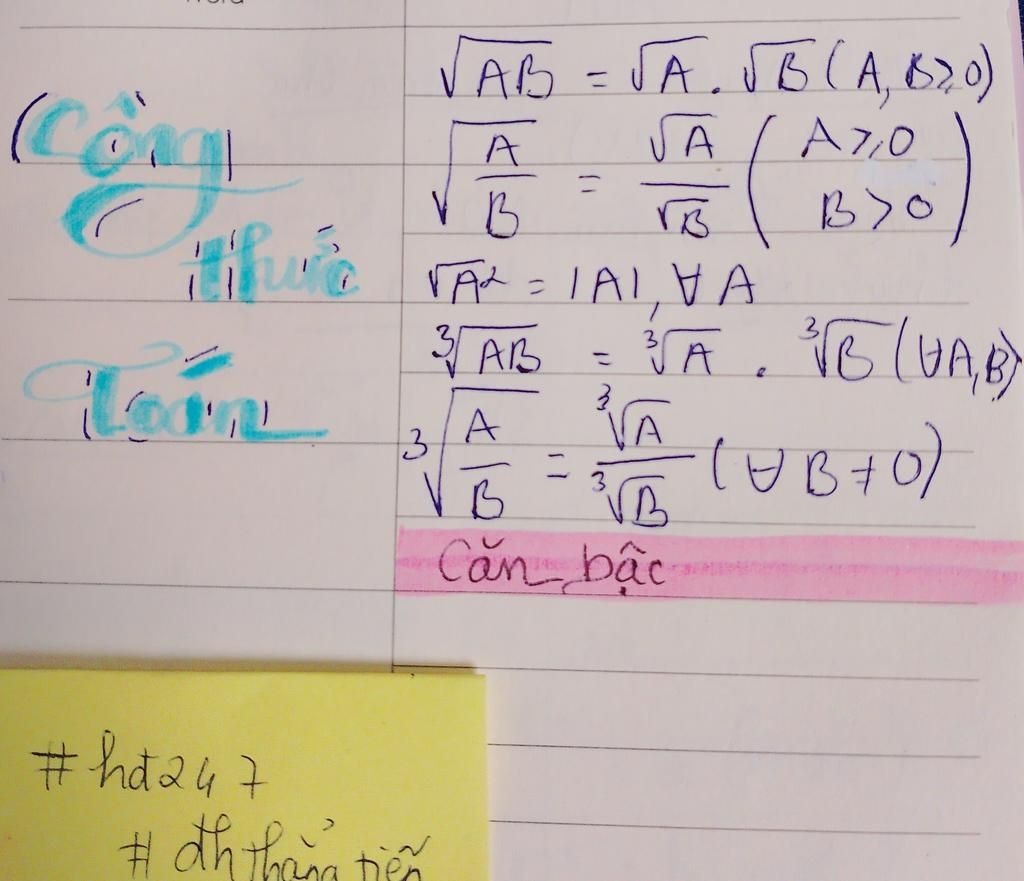 Công
thức
Toán
√AB = √A . √B (A, B ≥ 0)
√(A/B) = √A/√B (A ≥ 0 B > 0)
√A² = |A|, ∀ A
³√AB = ³√A . ³√B (∀A, B)
³√(A/B) = ³√A/³√B (∀ B ≠ 0)
Căn bậc
#hđ247
# đh thẳng tiến